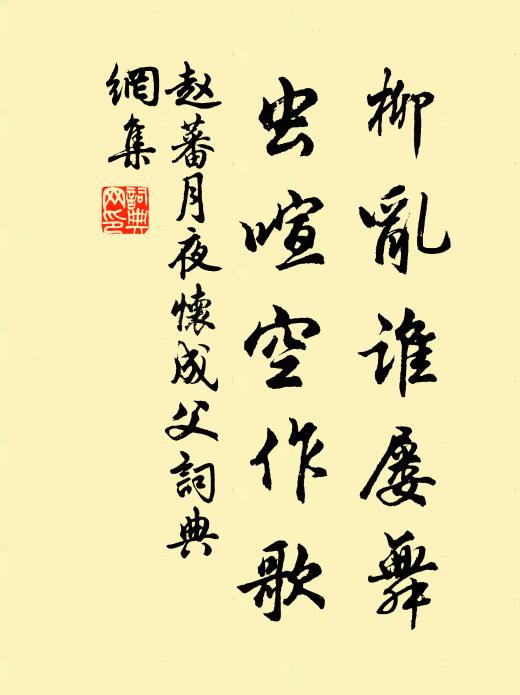 柳亂誰屡舞
虫喧空作歌
赵蕃月夜懷成父詞典
網集
詞典
网印